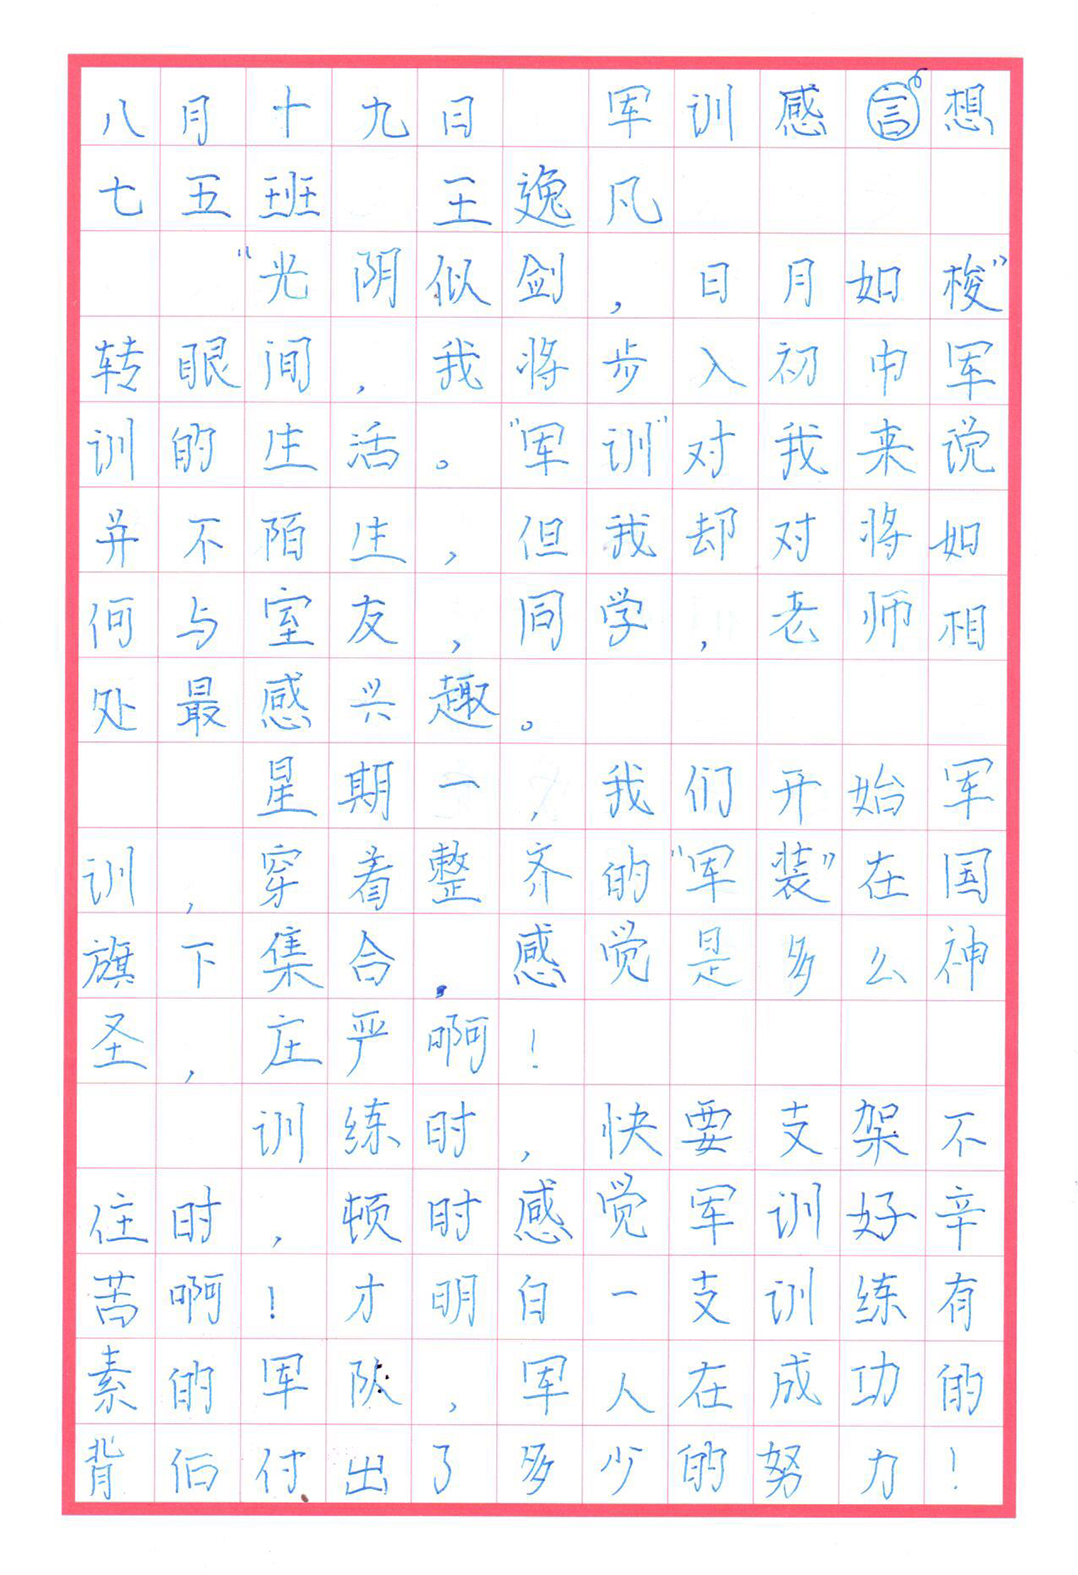 八月十九日 军训感言想
七五班 王逸凡
“光阴似剑，日月如梭”
转眼间，我将步入初中军
训的生活。“军训”对我来说
并不陌生，但我却对将如
何与室友，同学，老师相
处最感兴趣。
星期一，我们开始军
训，穿着整齐的“军装”在国
旗下集合，感觉是多么神
圣，庄严啊！
训练时，快要支架不
住时，顿时感觉军训好辛
苦啊！才明白一支训练有
素的军队，军人在成功的
背后付出了多少的努力！